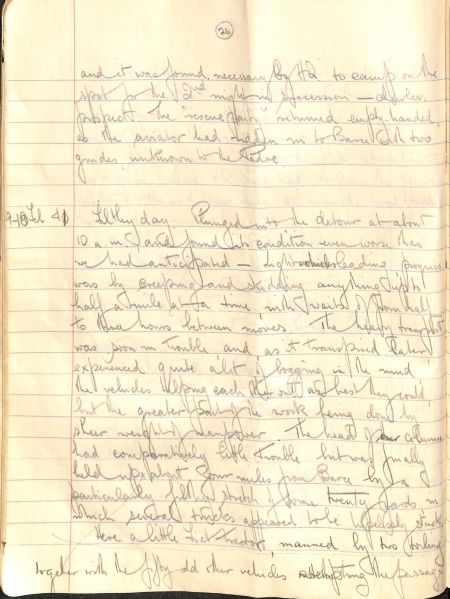 26
and it was found necessary by HQ to camp on the
spot for the 2nd night in succession – cheerless
prospect. The "rescue party" returned empty-handed,
as the aviator had ridden in to Barce with two
guides, unknown to the Padre
9-10 Feb 41 Filthy day. Plunged into the detour at about
10 a.m. and found its condition even worse than
we had anticipated – light vehicles leading progress
was by creeping and skidding anything up to
half a mile at a time, with waits of from half
to three hours between moves. The heavy transport
was soon in trouble, and, as it transpired later
experienced quite a lot of bogging in the mud
the vehicles helping each other out as best they could,
but the greater part of the work being done by
sheer weight of manpower. The head of our column
had comparatively little trouble but was finally
held up about four miles from Barce by a
particularly filthy stretch of some twenty yards in
which several trucks appeared to be hopelessly stuck.
Here a little Fiat tractor, manned by two
together with the fifty odd other vehicles attempting the passage